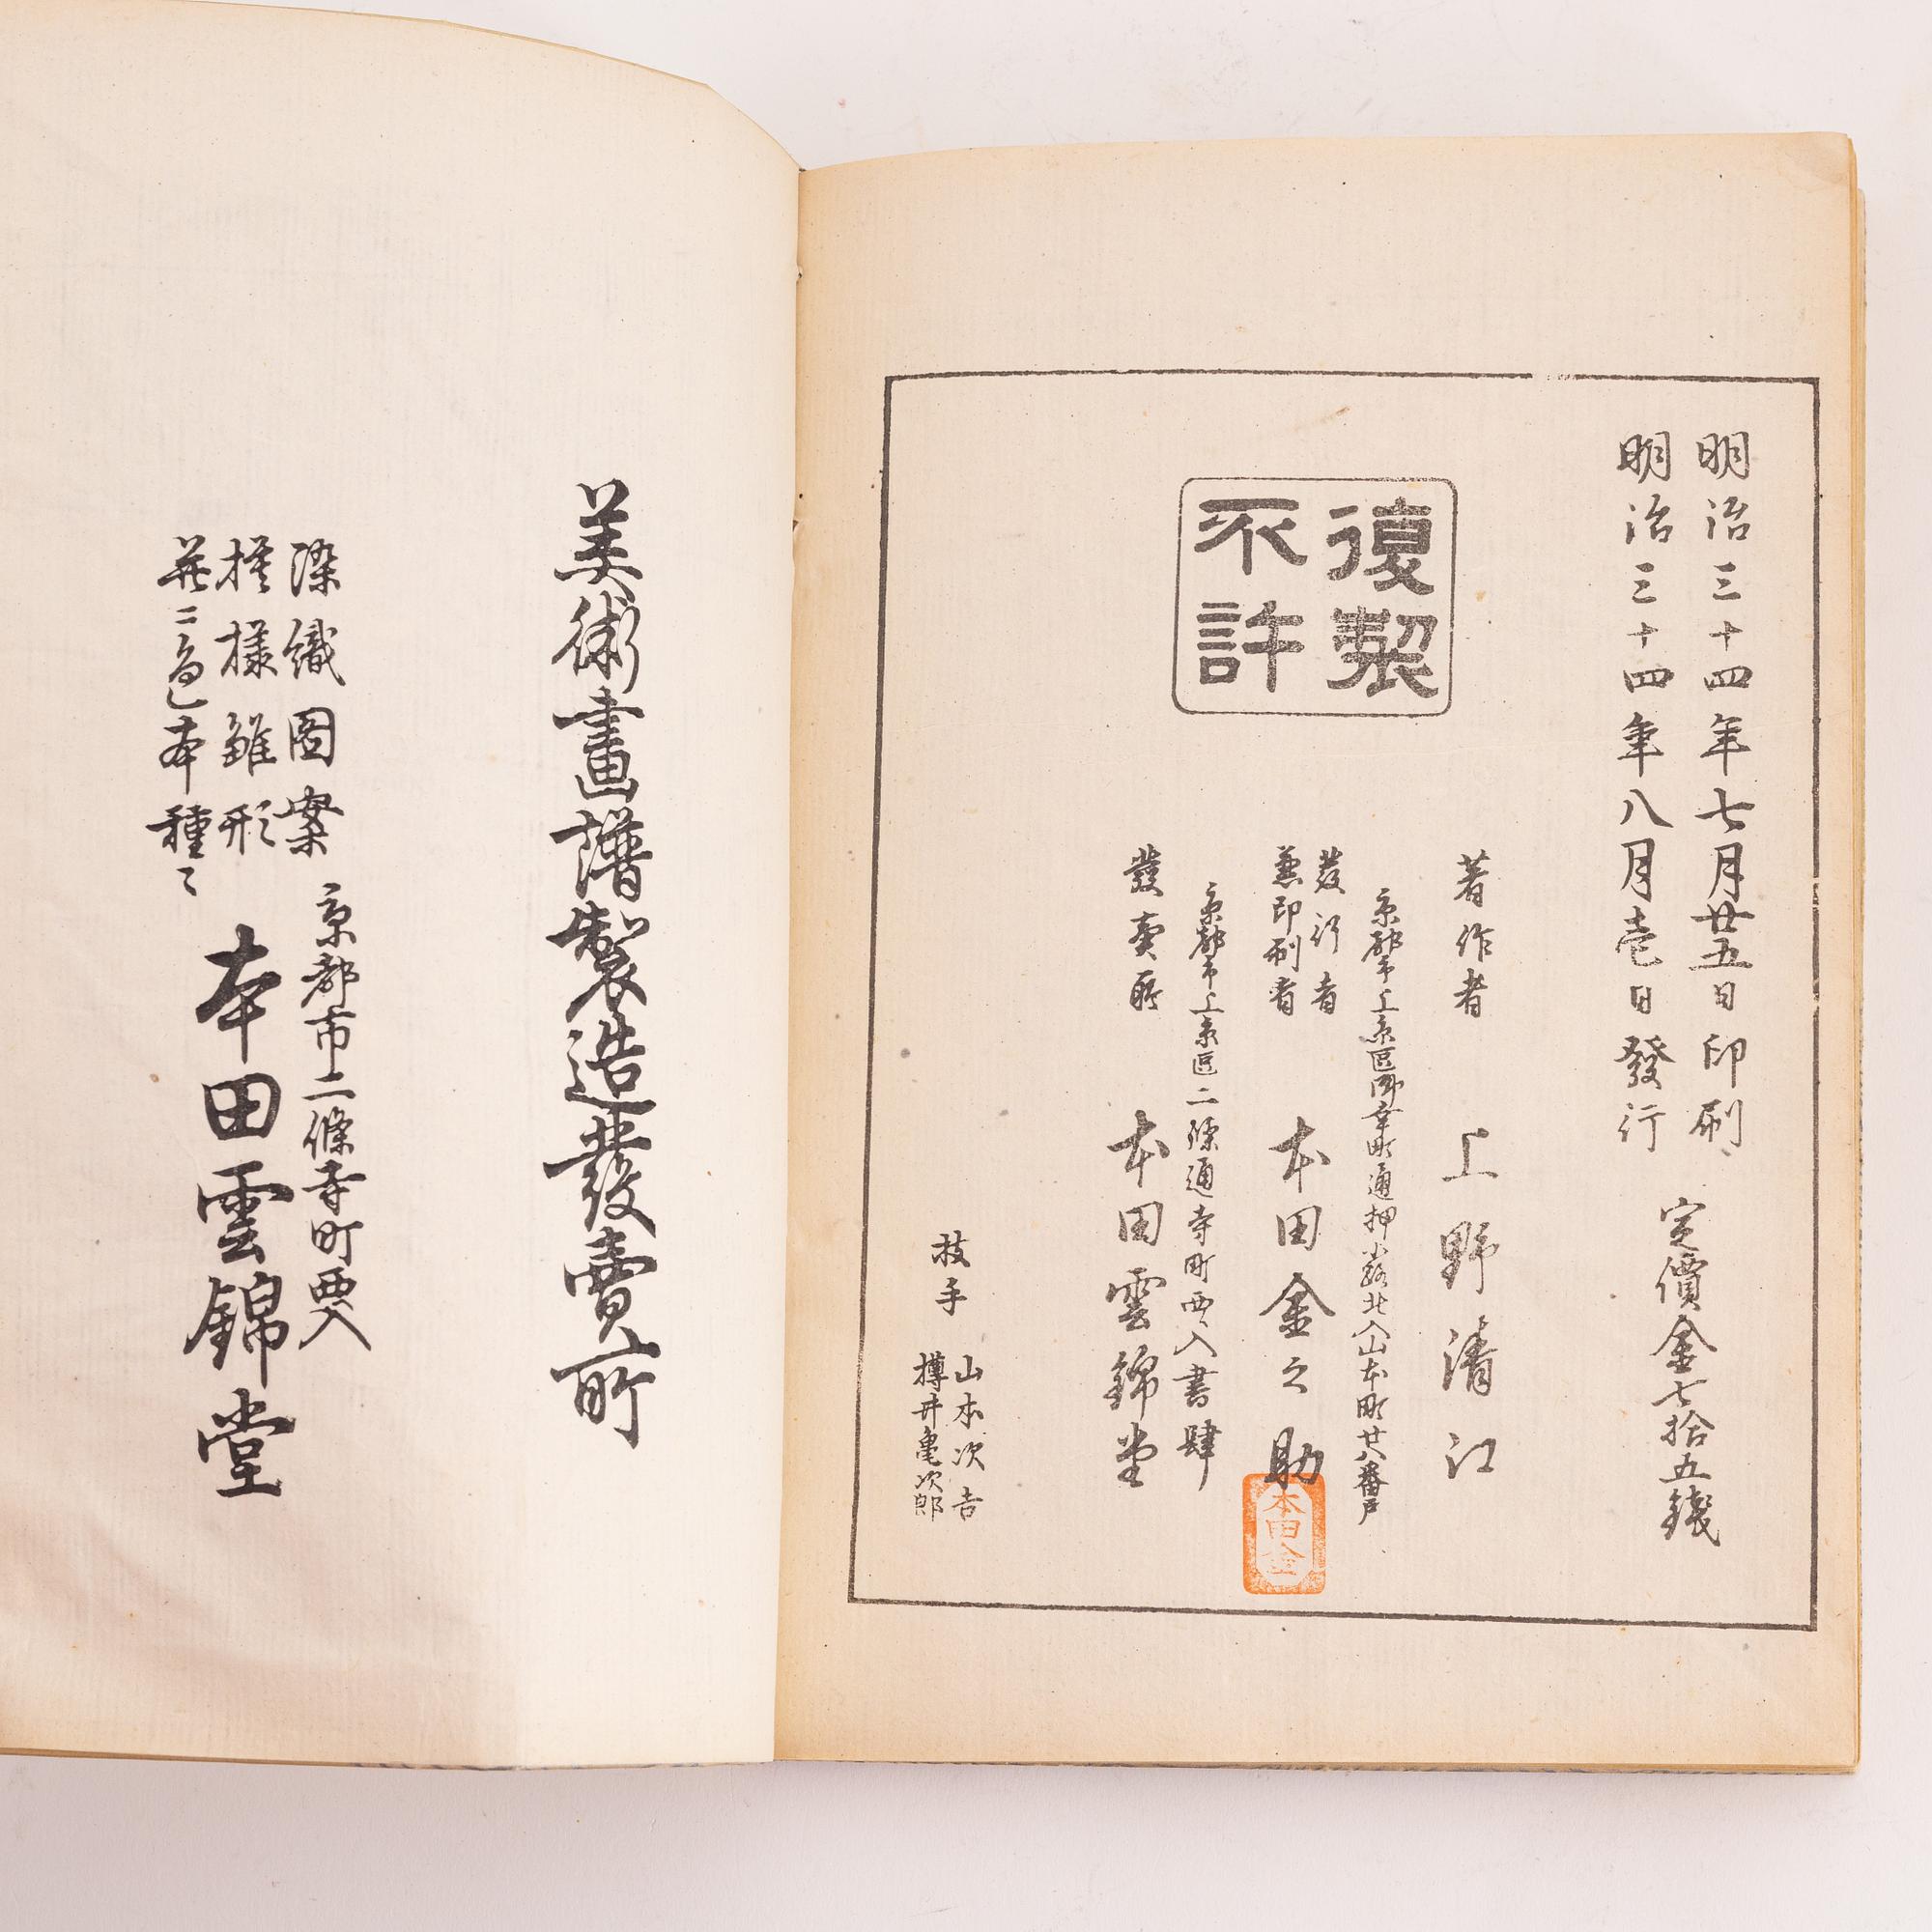 明治三十四年七月廿五日印刷
明治三十四年八月壱日發行
定價金七拾五錢
復製
不許
著作者 上野清江
京都市上京區御幸町通押小路北入山本町廿八番戸
發行者
兼印刷者 本田金之助
本田金
京都市上京區二條通寺町西入書肆
發賣所 本田雲錦堂
技手 山本次吉
樽井亀次郎
美術畫譜製造發賣所
染織圖案
模様雛形
并ニ色本種々
京都市二條寺町西入
本田雲錦堂